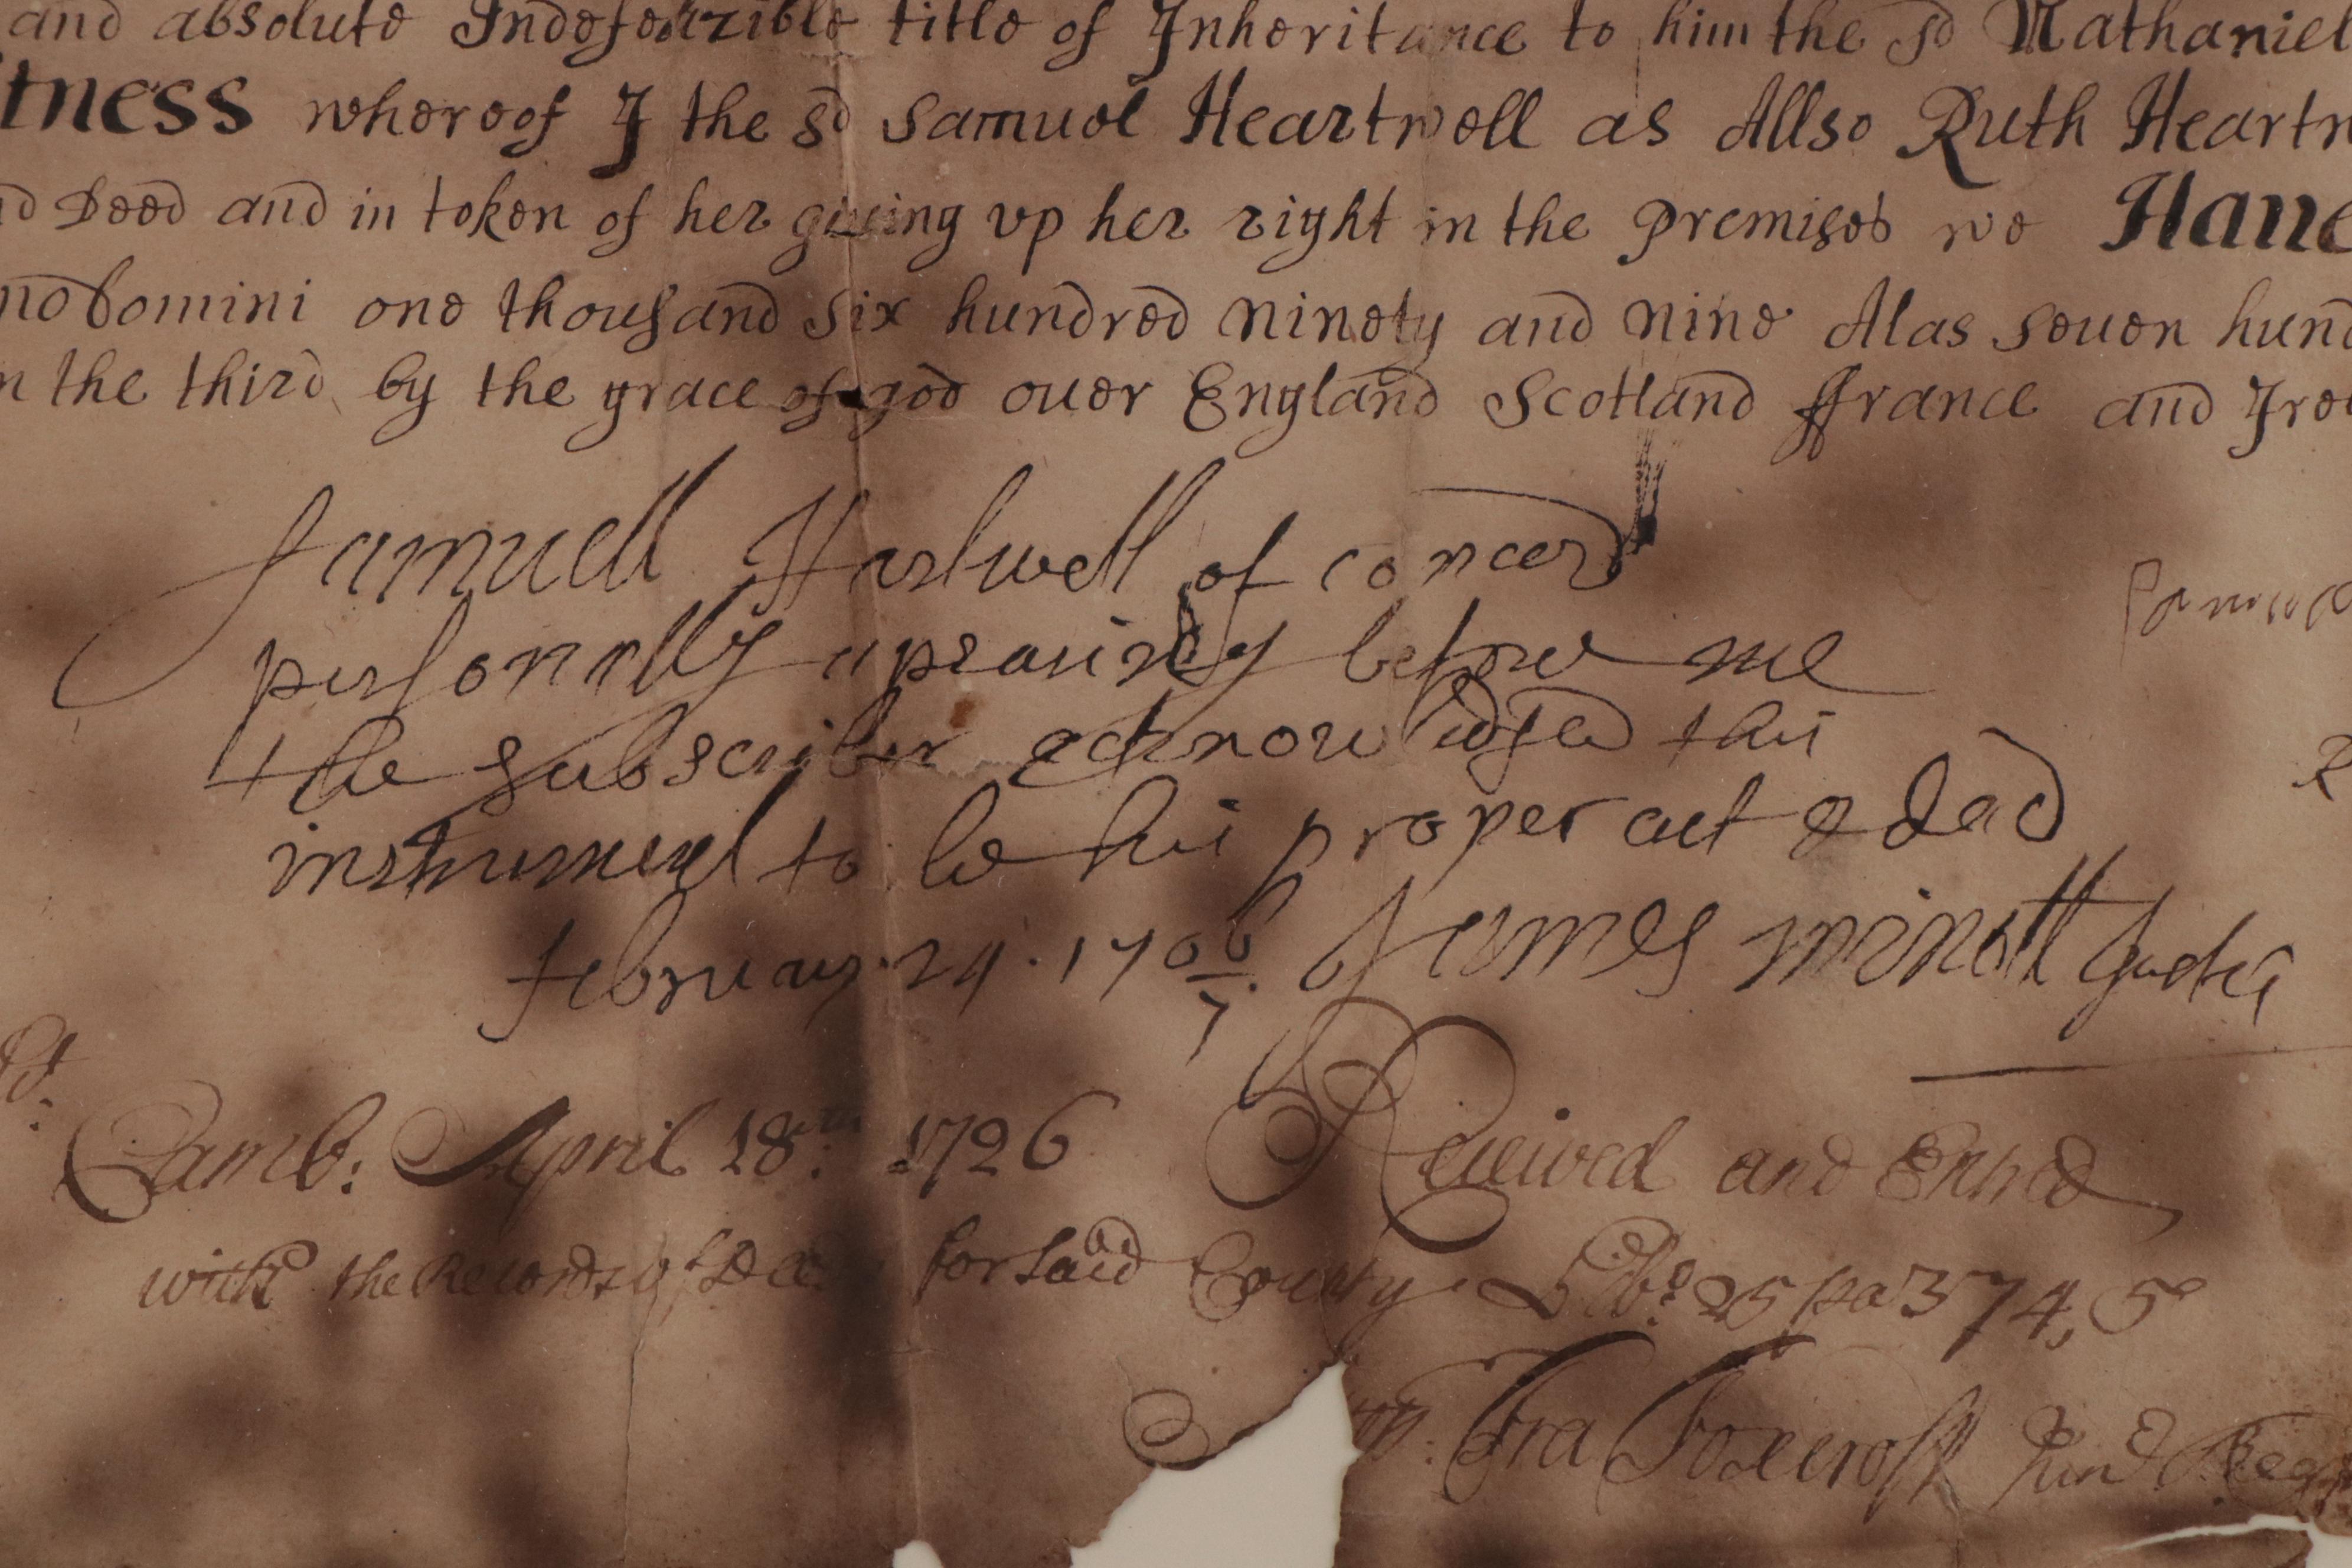 and absolute Indefeazible title of Inheritance to him the sd Nathaniel
tness whereof I the sd Samuel Heartwell as Allso Ruth Heartw
d Deed and in token of her giuing vp her right in the premises we Haue
no Domini one thousand six hundred ninety and nine Alas seuen hund
n the third by the grace of god ouer England Scotland ffrance and Irel
Samuell Hartwell of concord
personally apearing before me
the subscriber acknowlidged this
instrument to be his proper act & dead
february 24 · 1706/7 James minott Justis
Camb: April 18th: 1726 Received and Entred
with the Records of Deeds for said County Libo: 25 pa 374, 5
Fra Foxcroft Junr Reg